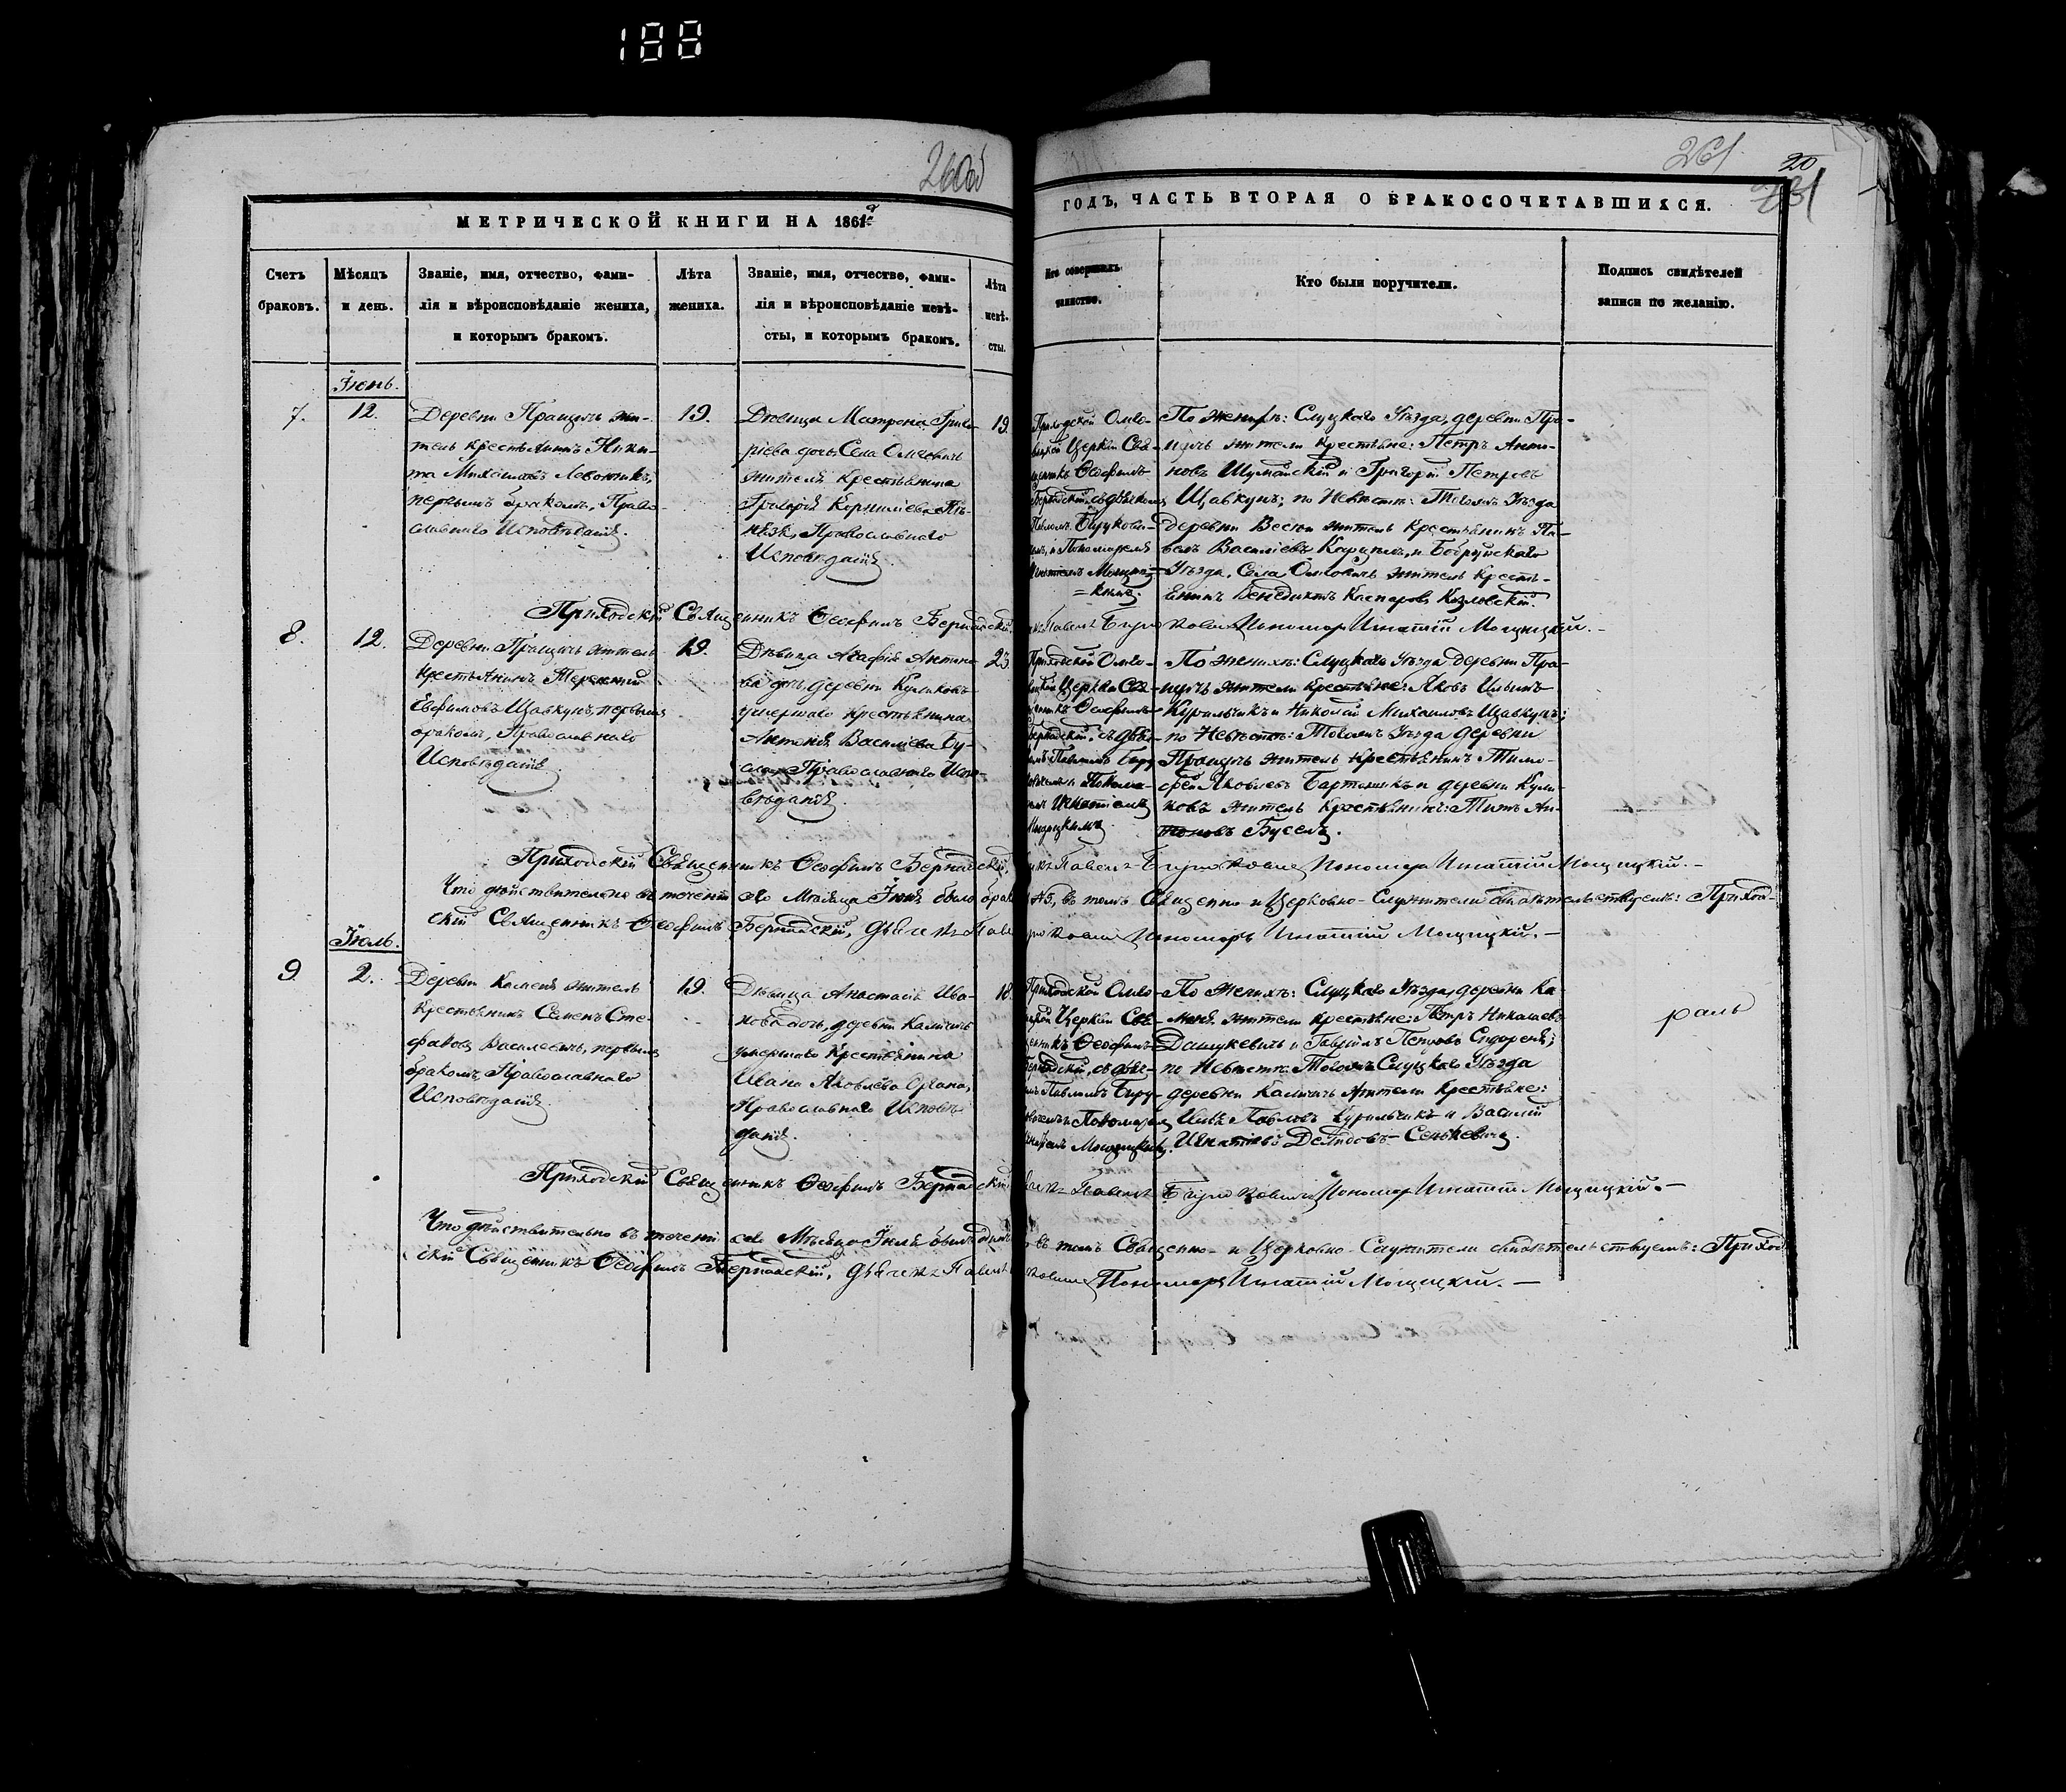 188
260об
261
20
МЕТРИЧЕСКОЙ КНИГИ НА 1861й
ГОДЪ, ЧАСТЬ ВТОРАЯ О БРАКОСОЧЕТАВШИХСЯ.
Счетъ браковъ.
Мѣсяцъ и день.
Званіе, имя, отчество, фами-
лія и вѣроисповѣданіе жениха,
и которымъ бракомъ.
Лѣта жениха.
Званіе, имя, отчество, фами-
лія и вѣроисповѣданіе невѣ-
сты, и которымъ бракомъ.
Лѣта невѣ-
сты.
Кто совершалъ
таинство.
Кто были поручители.
Подпись свидѣтелей
записи по желанію.
Іюнь.
7.
12.
Деревни Працичъ жи-
тель крестьянинъ Ники-
та Михаиловъ
первымъ бракомъ, Право-
славнаго Исповѣданія.
19.
Дѣвица Матрона Григо-
ріева дочь Села Омговичъ
жителя Крестьянина
Григорія Корниліева
Православнаго
Исповѣданія.
19.
Приходской Омго-
вицкой Церкви Свя-
щенникъ Ѳеофилъ
Бернадскій, съ дьячкомъ
Павломъ Бирукови-
чемъ, и Пономаремъ
Игнатіемъ Мощиц-
=кимъ.
По женихѣ: Слуцкаго Уѣзда, деревни Пра-
цичъ жители крестьяне: Петръ Анто-
новъ Шуманскій и Григорій Петровъ
Щавкунъ; по Невѣстѣ: Тогожъ Уѣзда
деревни Весеи житель крестьянинъ Па-
велъ Василіевъ и Бобруйскаго
Уѣзда, Села Омговичъ житель Кресть-
янинъ Венедиктъ Каспаровъ Козловскій.
Приходскій Священникъ Ѳеофилъ Бернадскій, Павелъ Бируковичъ Пономарь Игнатій Мощицкій.-
8.
12.
Деревни Працичъ житель
крестьянинъ Терентій
Евфимовъ Щавкунъ, первымъ
бракомъ, Православнаго
Исповѣданія
19.
Дѣвица Агафія Антоно-
ва дочь, деревни Куликовъ
умершаго крестьянина
Антонія Василіева Бу-
сла, Православнаго Испо-
вѣданія.
23.
Приходской Омго-
вицкой Церкви Свя-
щенникъ Ѳеофилъ
Бернадскій, съ дьяч-
комъ Павломъ Биру-
ковичемъ и Понома-
ремъ Игнатіемъ
Мощицкимъ
По женихѣ: Слуцкаго Уѣзда деревни Пра-
цичъ жители крестьяне: Яковъ Ильинъ
Курильчикъ и Николай Михаиловъ Щавкунъ;
по Невѣстѣ: Тогожъ Уѣзда деревни
Працичъ житель крестьянинъ Тимо-
фей Яковлевъ Бартошикъ и деревни Кули-
ковъ житель Крестьянинъ: Титъ Ан-
тоновъ Буселъ.
Приходскій Священникъ Ѳеофилъ Бернадскій, Павелъ Бируковичъ Пономарь Игнатій Мощицкій.-
Что дѣйствительно въ теченіи сего Мѣсяца Іюня было въ томъ Священно- и Церковно-Служители свидѣтельствуемъ: Приход-
скій Священникъ Ѳеофилъ Бернадскій, дьячекъ Павелъ Бируковичъ Пономарь Игнатій Мощицкій.-
Іюль.
9
2.
Деревни Каменя житель
Крестьянинъ Семенъ Сте-
фановъ Василевичъ, первымъ
бракомъ, Православнаго
Исповѣданія.
19.
Дѣвица Анастасія Ива-
нова дочь, деревни Калчичъ
умершаго Крестьянина
Ивана Яковлева Органа,
Православнаго Исповѣ-
данія.
18.
Приходской Омго-
вицкой Церкви Свя-
щенникъ Ѳеофилъ
Бернадскій, съ дьяч-
комъ Павломъ Биру-
ковичемъ и Пономаремъ
Игнатіемъ Мощицкимъ.
По женихѣ: Слуцкаго Уѣзда, деревни Ка-
меня жители крестьяне: Петръ Николаевъ
Дашукевичъ и Гавріилъ Петровъ
по Невѣстѣ Тогожъ Слуцкаго Уѣзда
деревни Калчичъ жители Крестьяне:
Илья Павловъ Курильчикъ и Василій
Игнатіевъ Сенкевичъ.
Приходскій Священникъ Ѳеофилъ Бернадскій Павелъ Бируковичъ Пономарь Игнатій Мощицкій.-
Что дѣйствительно въ теченіи сего Мѣсяца Іюля былъ одинъ въ томъ Священно- и Церковно-Служители свидѣтельствуемъ: Приход-
скій Священникъ Ѳеофилъ Бернадскій, дьячекъ Павелъ Бируковичъ Пономарь Игнатій Мощицкій.-